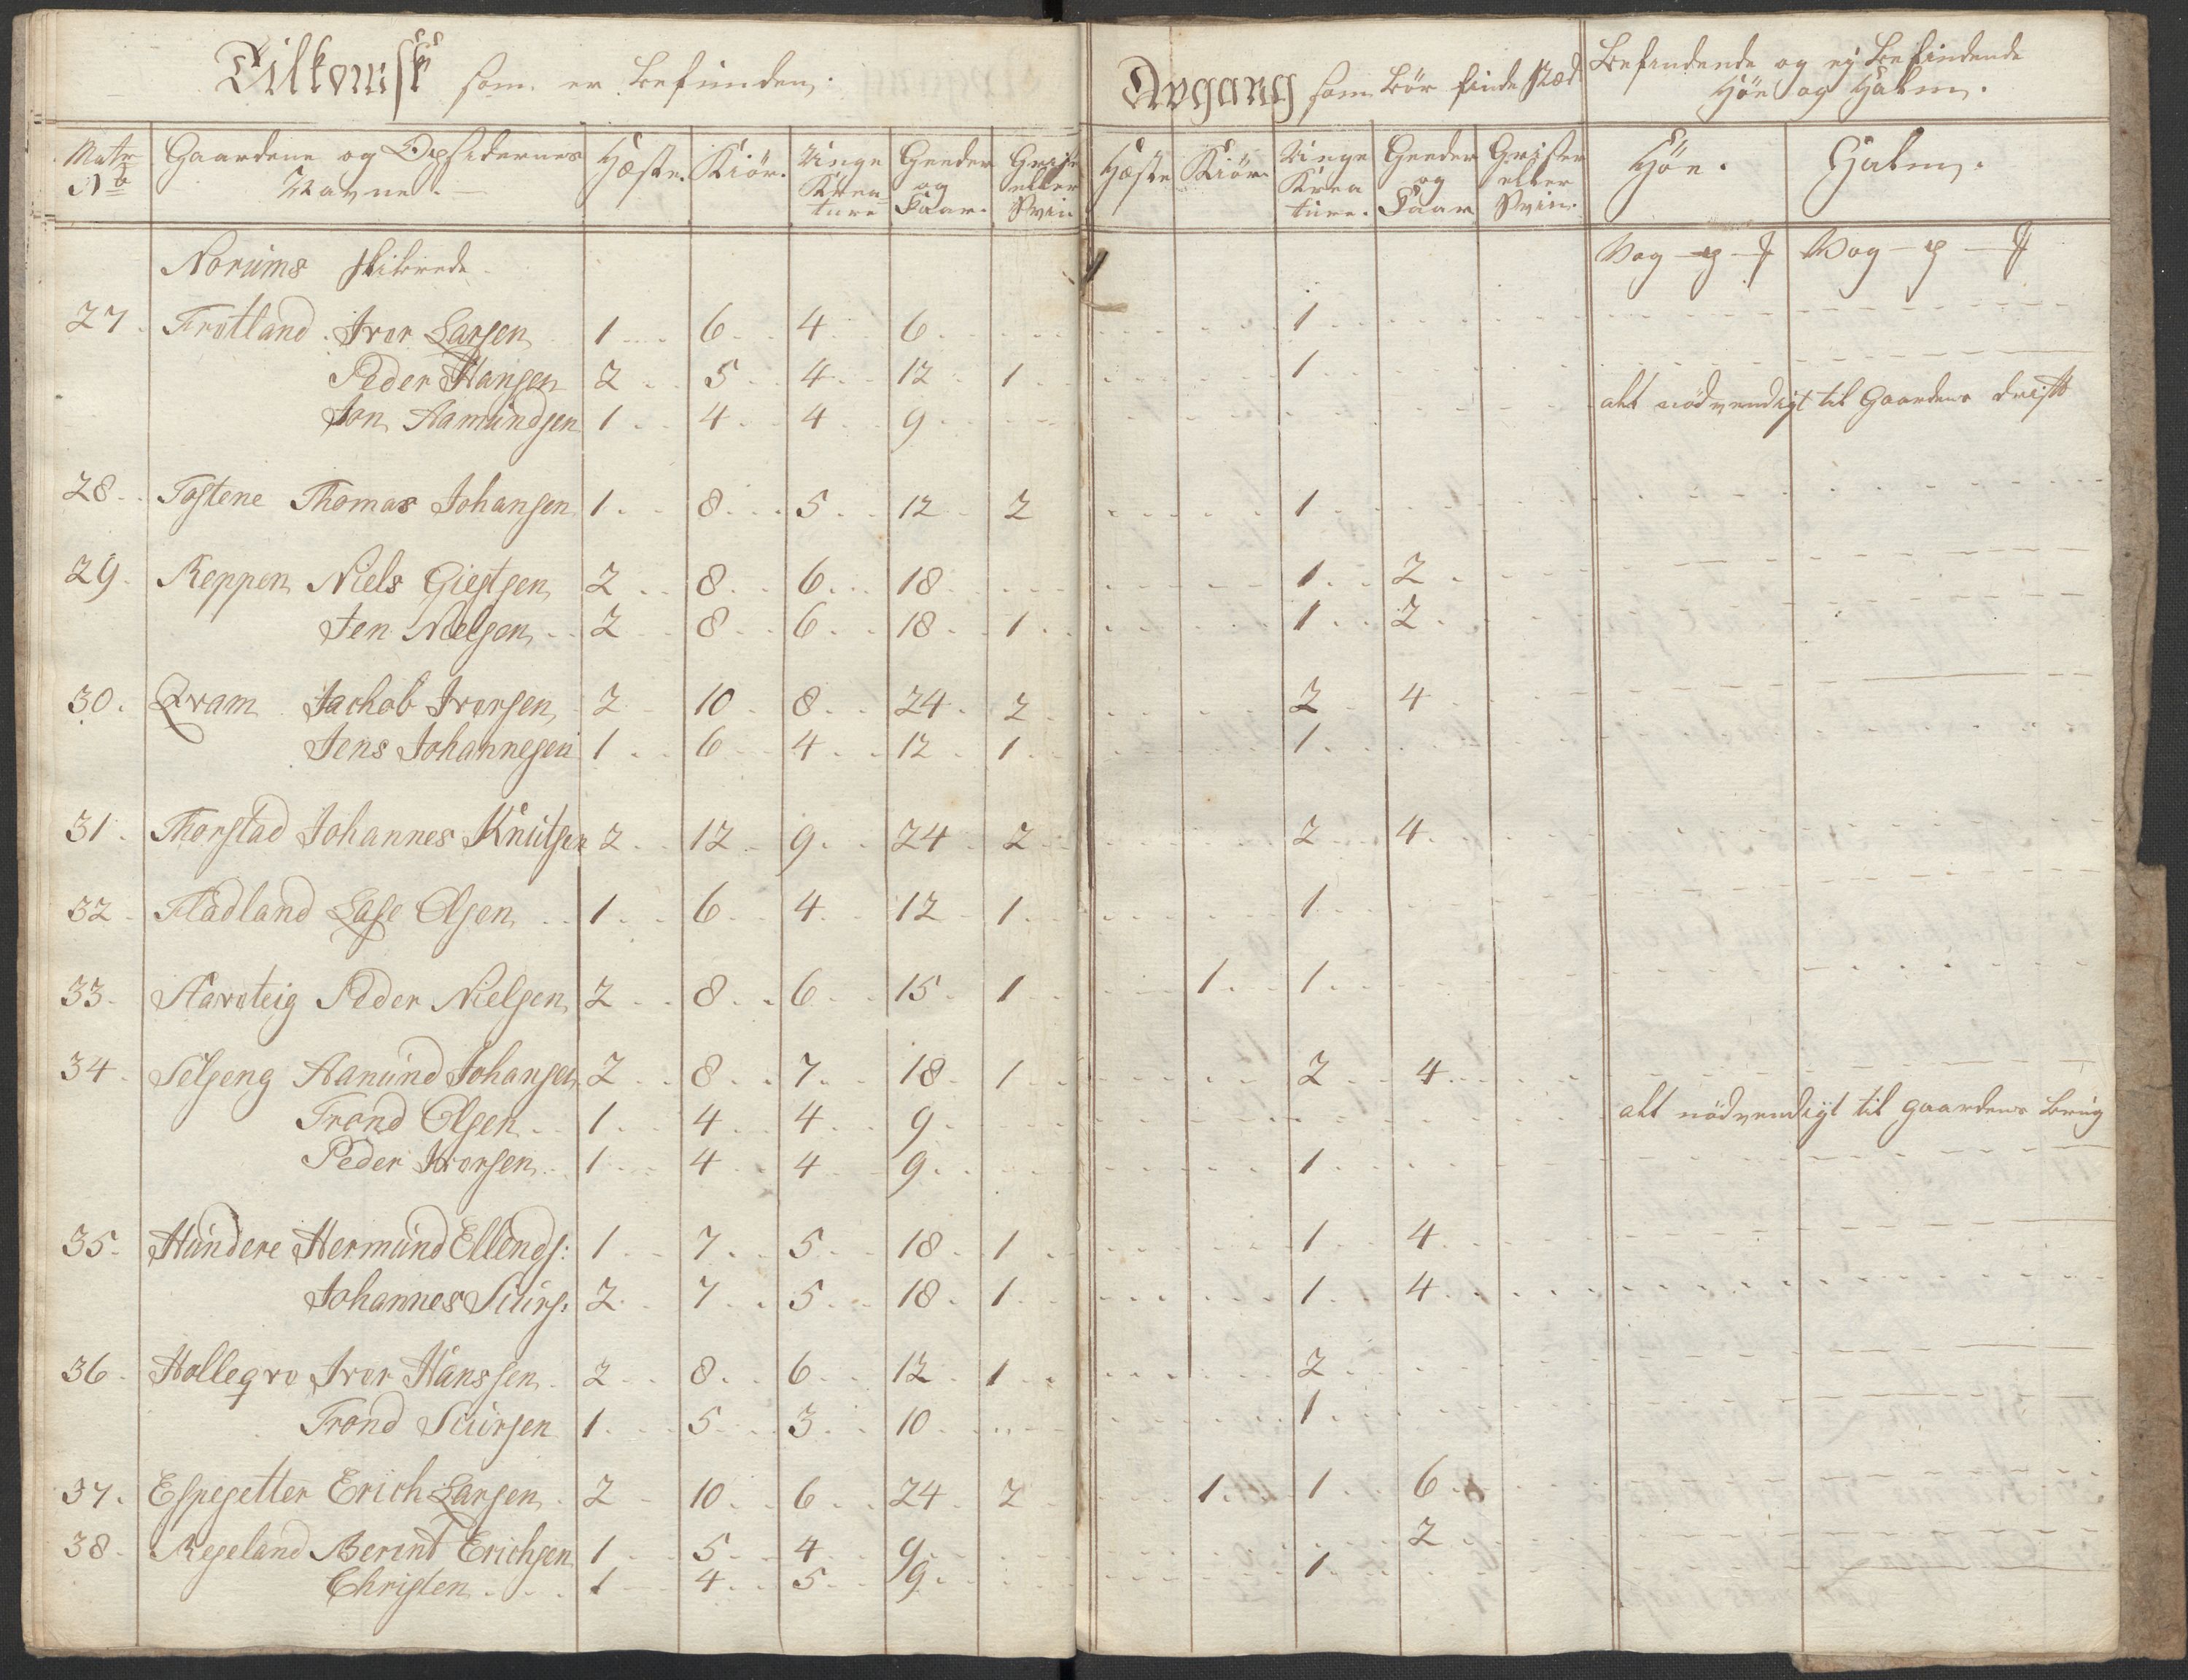 Tilkomst som er befunden.
Avgang som bör finde stæd
Befindende og ej befindende
Höe og Halm.
Matr No | Gaardene og Opsidernes Navne. | Hæste. | Kiör. | Unge Kreature | Geeder og Faar. | Grise eller Svin | Hæste | Kiör. | Unge Kreature. | Geeder og Faar | Griser eller Svin. | Höe. | Halm.
Norums skibrede
Vog - | Vog -
27. Frotland. Iver Larsen 1 6 4 6 | 1
Peder Hansen 2 5 4 12 1 | 1
Jon Aamundsen 1 4 4 9 | alt nödvendigt til Gaardens drift
28. Tostene Thomas Johansen 1 8 5 12 2 | 1
29. Reppen Niels Giestsen 2 8 6 18 | 1 2
Jen Nielsen 2 8 6 18 1 | 1 2
30. Qvam Jachob Iversen 2 10 8 24 2 | 2 4
Jens Johannesen 1 6 4 12 1 | 1
31. Thorstad Johannes Knutsen 2 12 9 24 2 | 2 4
32. Fladland Lasse Olsen 1 6 4 12 1 | 1
33. Aaroteig Peder Nielsen 2 8 6 15 1 | 1 1
34. Selseng Aamund Johansen 2 8 7 18 1 | 2 4
Trond Olsen 1 4 4 9 | alt nödvendigt til gaardens brug
Peder Iversen 1 4 4 9 | 1
35. Hundere Hermund Ellends: 1 7 5 18 1 | 1 4
Johannes Siurs: 2 7 5 18 1 | 1 4
36. Hollegro Iver Hanssen 2 8 6 12 1 | 2
Trond Siursen 1 5 3 10 | 1
37. Espesetter Erich Larsen 2 10 6 24 2 | 1 1 6
38. Regeland Berent Erichsen 1 5 4 9 | 2
Christen 1 4 5 9 | 1